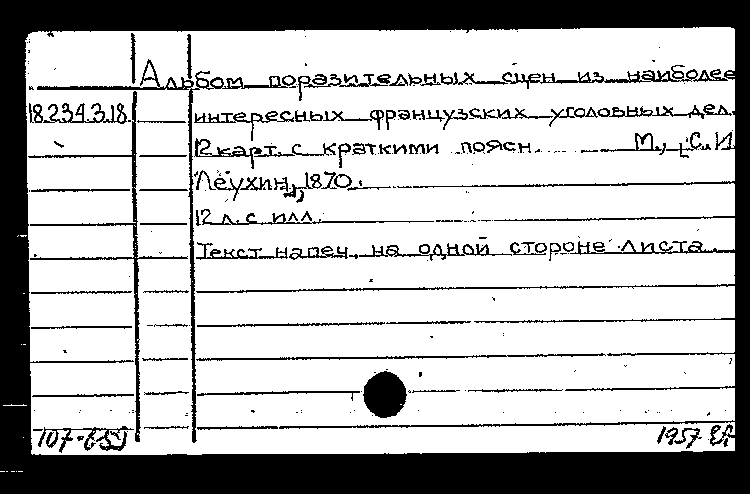 Альбом поразительных сцен из наиболее
18.234.3.18. интересных французских уголовных дел.
12 карт. с краткими поясн. М., [С. И.
Леухин], 1870.
12 л. с илл.
Текст напеч. на одной стороне листа.
1957